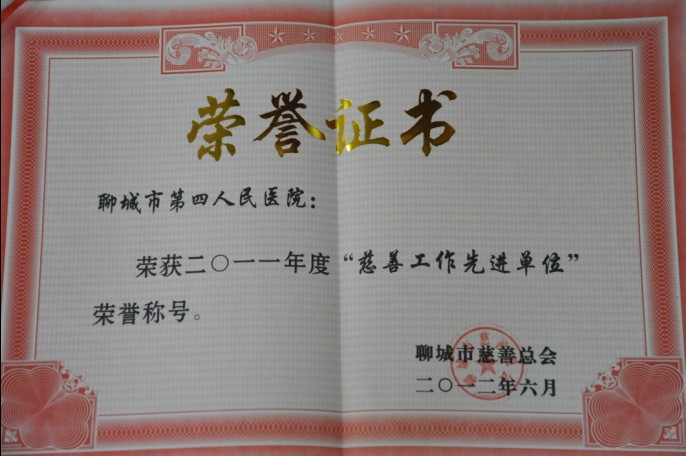 荣誉证书
聊城市第四人民医院：
荣获二〇一一年度“慈善工作先进单位”
荣誉称号。
聊城市慈善总会
二〇一二年六月